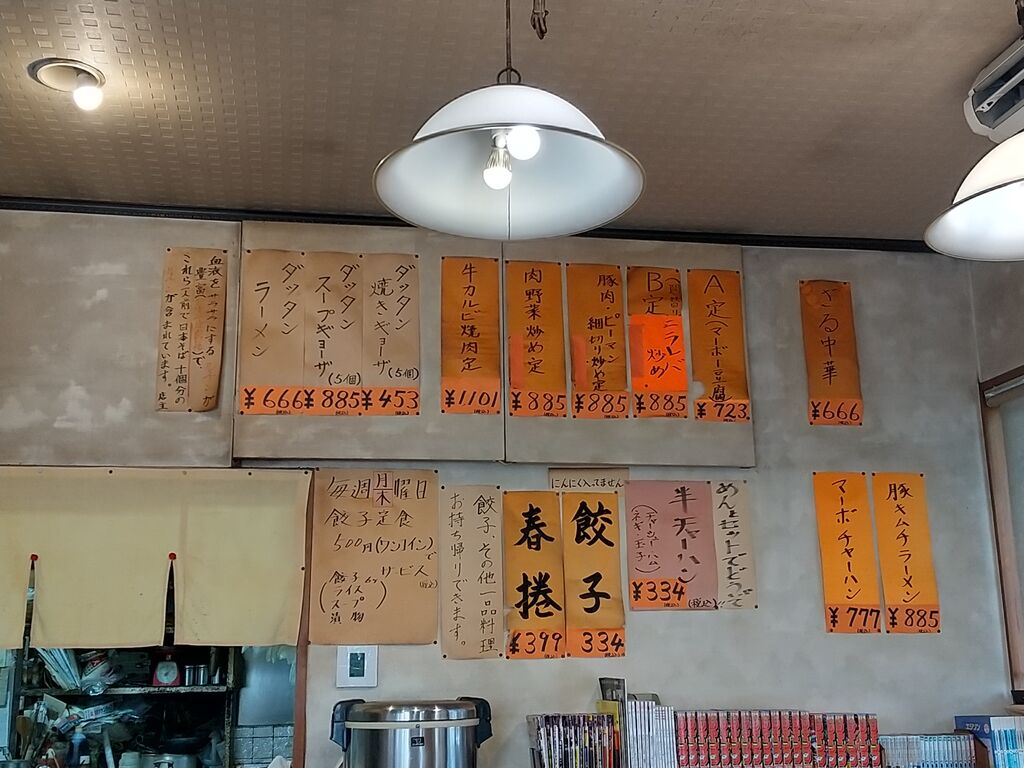 ざる中華
¥666
(税込)
A定(マーボー豆腐)
¥723
(税込)
B定
ニラレバ
炒め
¥885
(税込)
豚肉・ピーマン
細切り炒め定
¥885
(税込)
肉野菜炒め定
¥885
(税込)
牛カルビ焼肉定
¥1101
(税込)
ダッタン
焼きギョーザ
(5個)
¥453
ダッタン
スープギョーザ
(5個)
¥885
ダッタン
ラーメン
¥666
血液をサラサラにする
が
豊富で、
これら一人前で日本そば十個分の
が含まれています。
店主
豚キムチラーメン
¥885
(税込)
マーボチャーハン
¥777
(税込)
めんとセットでどうぞ!!
半チャーハン
(チャーシュー・ハム
ネギ・玉子)
¥334
(税込)
にんにく入ってません
餃子
334
(税込)
春捲
¥399
(税込)
餃子、その他一品料理
お持ち帰りできます。
毎週月木曜日
餃子定食
500円(ワンコイン)で
サービス
(税込)
餃子
ライス
スープ
漬物